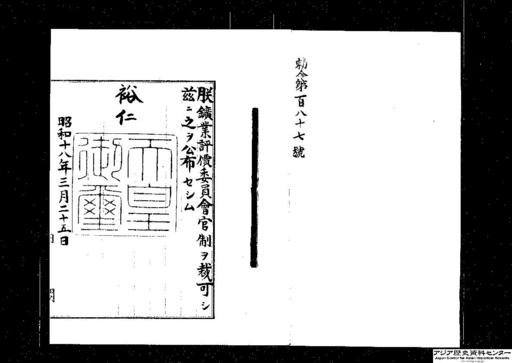 勅令第百八十七號
朕鑛業評價委員會官制ヲ裁可シ
茲ニ之ヲ公布セシム
裕仁
天皇御璽
昭和十八年三月二十五日
アジア歴史資料センター
Japan Center for Asian Historical Records